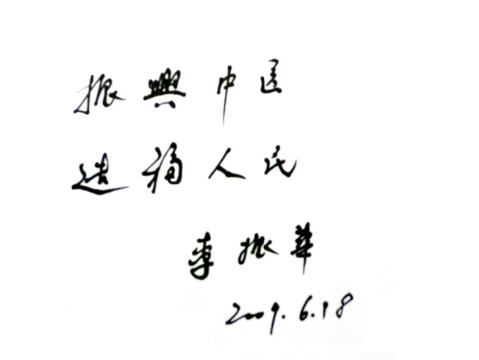 振興中医
造福人民
李振華
2009.6.18